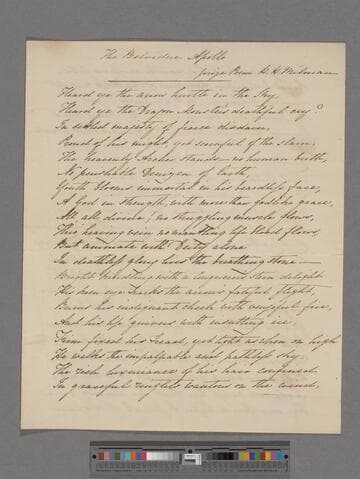 The Belvidere Apollo
prize Poem H. H. Milman
Heard ye the arrow hurtle in the Sky,
Heard ye the Dragon Monster's deathful cry
In settled majesty of fierce disdain,
Proud of his might, yet scornful of the slain,
The heavenly Archer stands — no human birth,
No perishable Denizen of Earth,
Youth blooms immortal in his beardless face,
A God in strength, with more than godlike grace.
All all divine! no struggling muscle glows,
Thro' heaving vein no mantling life blood flows,
But animate with Deity alone
In deathless glory lives the breathing stone —
Bright kindling with a conqueror's stern delight
His keen eye tracks the arrows fateful flight,
Burns his indignant cheek with vengeful fire,
And his lip quivers with insulting ire
Firm fixed his tread, yet light as when on high
He walks the impalpable and pathless sky.
The rich luxuriance of his hair confined
In graceful ringlets wantons on the wind,